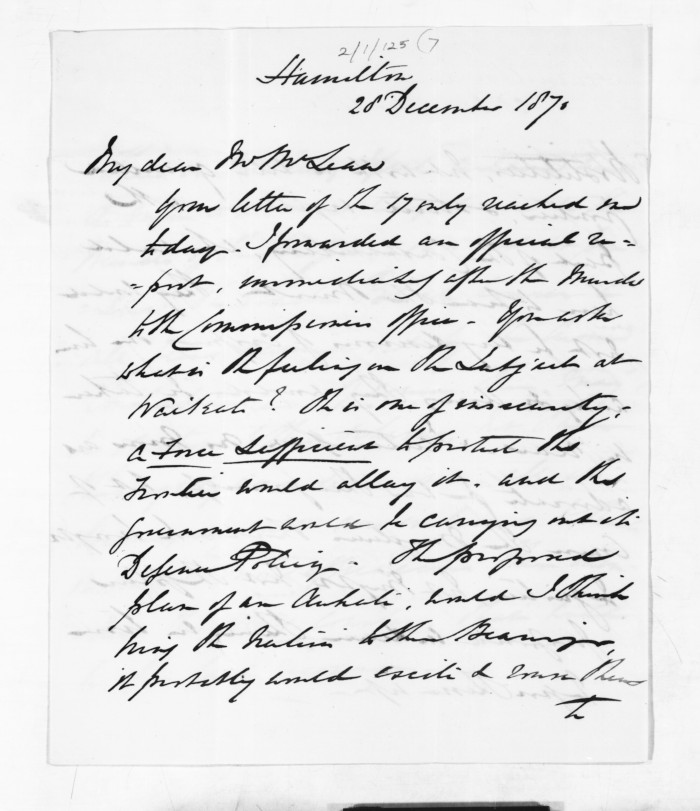 2/1/125 (7
Hamilton
28 December 1870
My dear Mr McLean
Your letter of the 17 only reached me
today. I forwarded an official re=
=port, immediately after the Murder
to the Commissioners office. You ask
what is the feeling on the Subject at
Waikato? It is one of insecurity.
a Force Sufficient to protect the
Frontier would allay it. and the
government would be carrying out its
Defence Policy. The proposed
plan of an Aukati, would I think
bring the Natives to their Bearings,
it probably would excite & rouse them
to